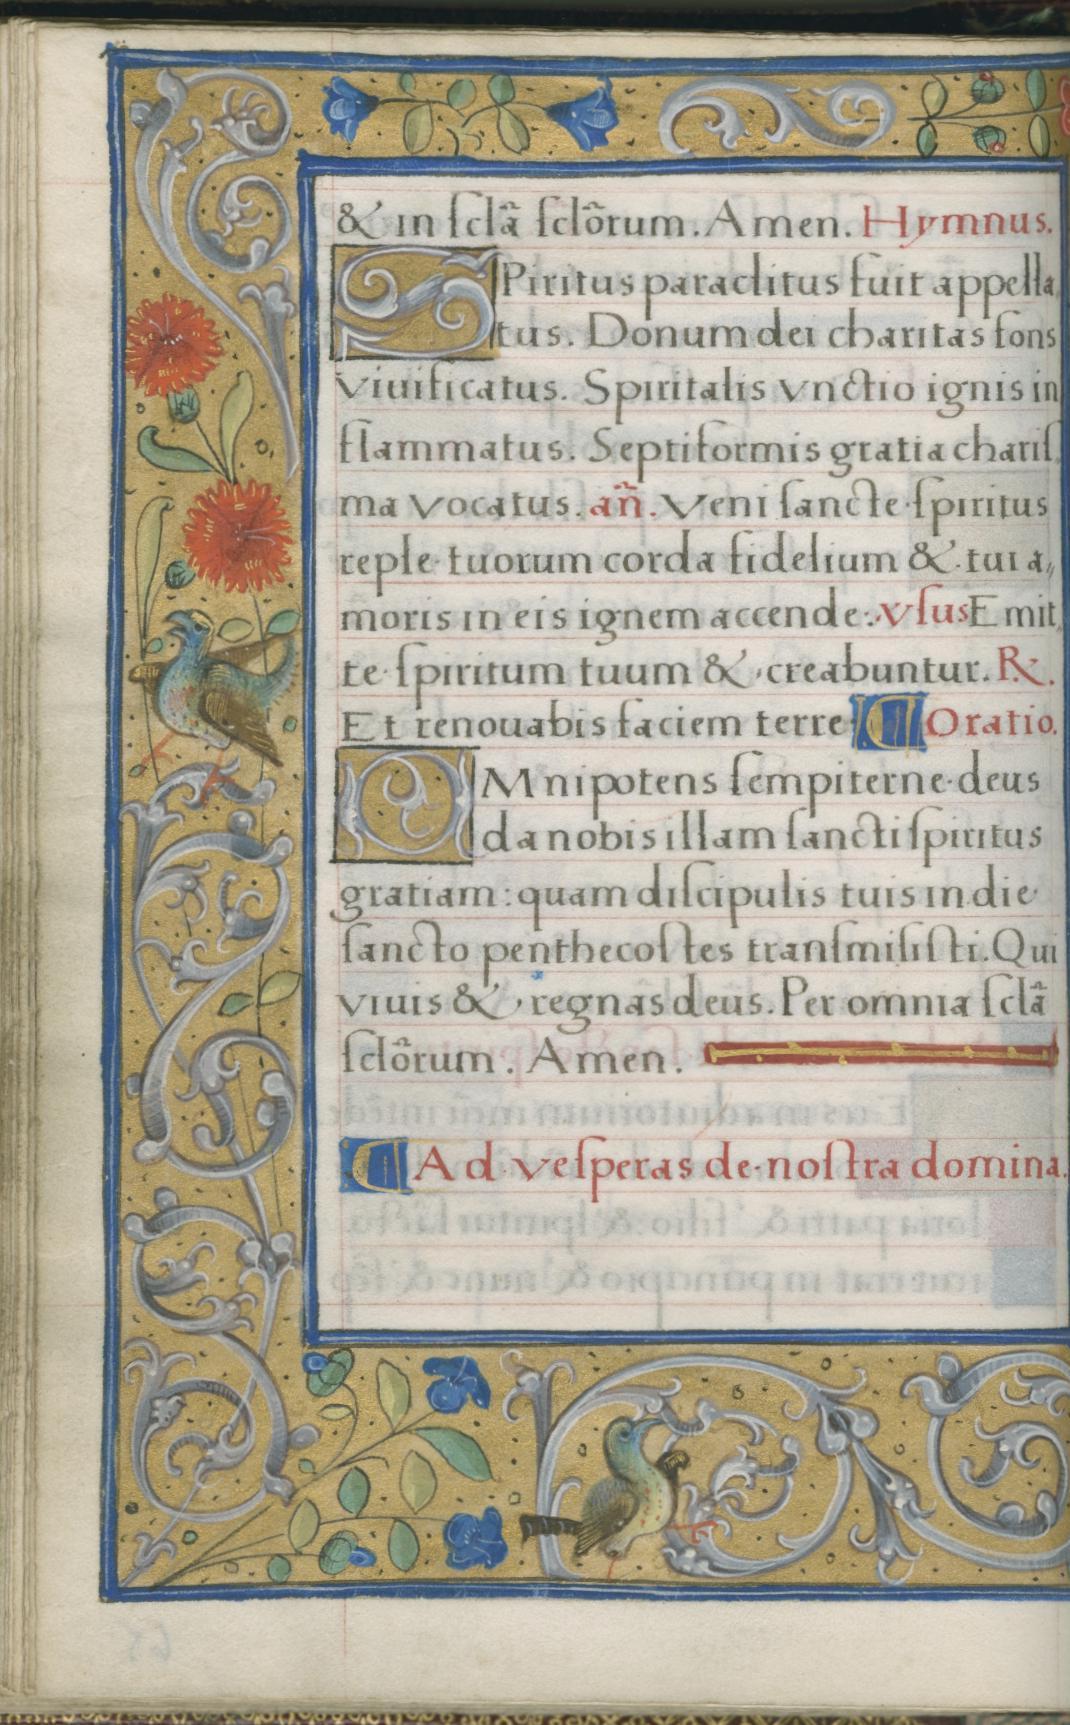 & in ſcl̃a ſcl̃orum. Amen. Hymnus.
SPiritus paraclitus fuit appella
tus. Donum dei charitas fons
viuificatus. Spiritalis vnctio ignis in
flammatus. Septiformis gratia chariſ
ma vocatus. añ. Veni ſancte ſpiritus
reple tuorum corda fidelium & tui a„
moris in eis ignem accende. vſus Emit
te ſpiritum tuum & creabuntur. ℞.
Et renouabis faciem terre. Oratio.
OMnipotens ſempiterne deus
da nobis illam ſancti ſpiritus
gratiam: quam diſcipulis tuis in die
ſancto penthecoſtes tranſmiſiſti. Qui
viuis & regnas deus. Per omnia ſcl̃a
ſcl̃orum. Amen.
Ad veſperas de noſtra domina.